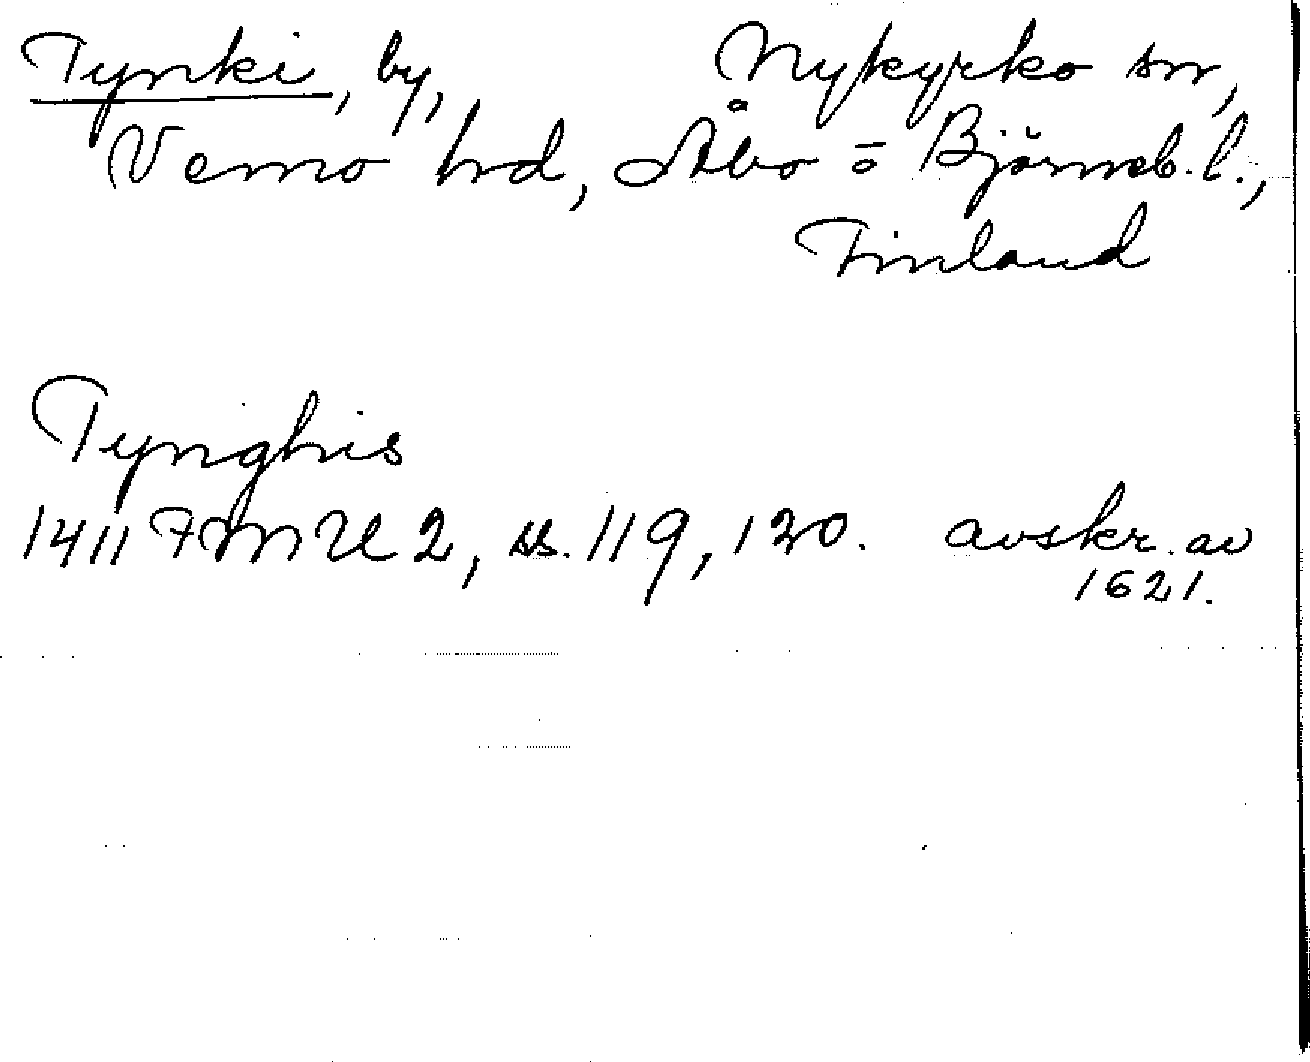 Tynki, by, Nykyrko sn,
Vemo hd, Åbo o Björneb. l.,
Finland
Tynghis
1411 FMU 2, ss. 119, 120. avskr. av
1621.